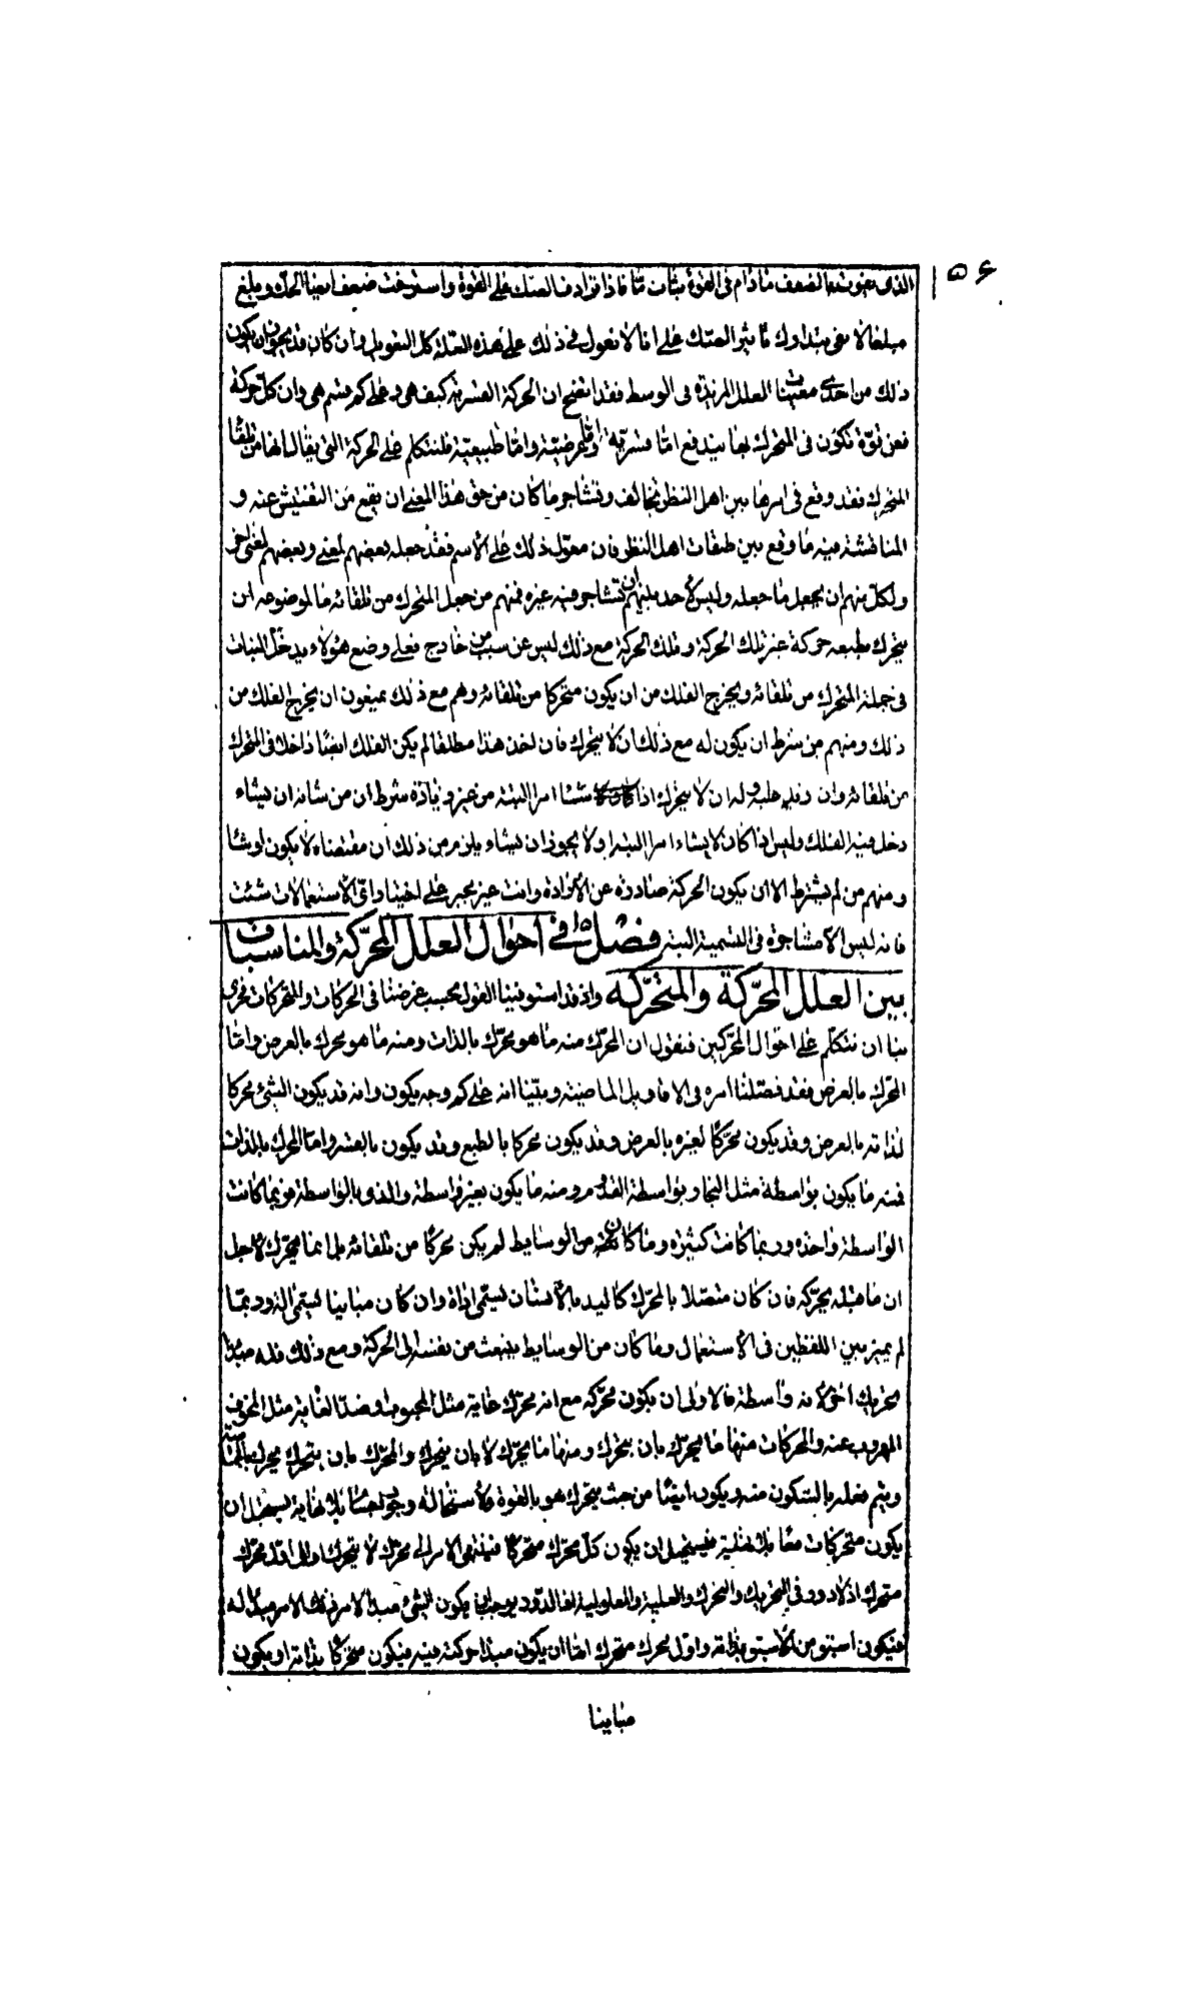 ١٥۶
الذى يفوت بالضعف ما دام فى القوة ثبات ما فاذا تزادف الصك على القوة واسترخت ضعف ايضا الحك وبلغ
مبلغا لا يفى بتدارك تاثير الصك على انا لا نعول فى ذلك على هذه العلة كل التعويل وان كان قد يجوز ان يكون
ذلك من احدى معينات العلل المزيدة فى الوسط فقد اتضح ان الحركة القسرية كيف هى وعلى كم قسم هى وان كل حركة
فعن قوة تكون فى المتحرك بها يندفع اما قسرية واما عرضية واما طبيعية فلنتكلم على الحركة التى يقال انها من تلقاء
المتحرك فقد وقع فى امرها بين اهل النظر تخالف وتشاجر ما كان من حق هذا المعنى ان يقع من التفتيش عنه و
المناقشة فيه ما وقع بين طبقات اهل النظر فان معول ذلك على الاسم فقد جعله بعضهم لمعنى وبعضهم لمعنى اخر
ولكل منهم ان يجعل ما جعله وليس لاحد منهم ان تشاجر فيه غيره فمنهم من جعل المتحرك من تلقائه ما لموضوعه ان
يتحرك بطبعه حركة غير تلك الحركة وتلك الحركة مع ذلك ليس عن سبب من خارج فعلى وضع هؤلاء يدخل النبات
فى جملة المتحرك من تلقائه ويخرج الفلك من ان يكون متحركا من تلقائه وهم مع ذلك يمنعون ان يخرج الفلك من
ذلك ومنهم من شرط ان يكون له مع ذلك ان لا يتحرك فان اخذ هذا مطلقا لم يكن الفلك ايضا داخلا فى المتحرك
من تلقائه وان وله ان لا يتحرك اذا شاء امرا البتة من غير زيادة شرط ان من شانه ان يشاء
دخل فيه الفلك وليس اذا كان لا يشاء امرا البتة او لا يجوز ان يشاء يلزم من ذلك ان مقتضاه لا يكون لو يشا
ومنهم من لم يشترط الا ان يكون الحركة صادرة عن الارادة وانت غير مجبر على اختيار اى الاستعمالات شئت
فانه ليس الا مشاجرة فى التسمية البتة فصل فى احوال العلل المحركة والمناسبات
بين العلل المحركة والمتحركة واذ قد استوفينا القول بحسب غرضنا فى الحركات والمتحركات فحرى
بنا ان نتكلم على احوال المحركين فنقول ان المحرك منه ما هو محرك بالذات ومنه ما هو محرك بالعرض واما
المحرك بالعرض فقد فصلنا امره فى الاقاويل الماضية وبينا انه على كم وجه يكون وانه قد يكون الشئ محركا
لذاته بالعرض وقد يكون محركا لغيره بالعرض وقد يكون محركا بالطبع وقد يكون بالقسر واما المحرك بالذات
فمنه ما يكون بواسطة مثل النجار بواسطة القدوم ومنه ما يكون بغير واسطة والذى بالواسطة فربما كانت
الواسطة واحدة وربما كانت كثيرة وما كان من الوسايط لم يكن محركا من تلقائه بل انما يحرك لاجل
ان ما قبله يحركه فان كان متصلا بالمحرك كاليد بالانسان ليسمى اداة وان كان مباينا ليسمى الة وربما
لم يميز بين اللفظين فى الاستعمال وما كان من الوسايط ينبعث من نفسه الى الحركة ومع ذلك فله مبدا
تحريك اخر لانه واسطة فالاولى ان يكون محركه مع انه محرك غاية مثل المحبوب او ضد الغاية مثل المخوف
المهروب عنه والمحركات منها ما يحرك بان يتحرك ومنها ما يحرك لا بان يتحرك والمحرك بان يتحرك يحرك بالمماسة
ويتم فعله بالسكون منه ويكون ايضا من حيث يتحرك هو بالقوة ولاستحالة وجود اجسام بلا نهاية يستحيل ان
يكون متحركات معا بلا نهاية فيستحيل ان يكون كل محرك متحركا فينتهى الامر الى محرك لا يتحرك والى اول محرك
متحرك اذ لا دور فى التحريك والتحرك والعلية والمعلولية اذ الدور يوجب ان يكون الشئ مبدا لامر ذلك الامر مبدا له
فيكون اسبق من الاسبق بذاته واول محرك متحرك اما ان يكون مبدا حركته فيه فيكون متحركا بذاته او يكون
مباينا